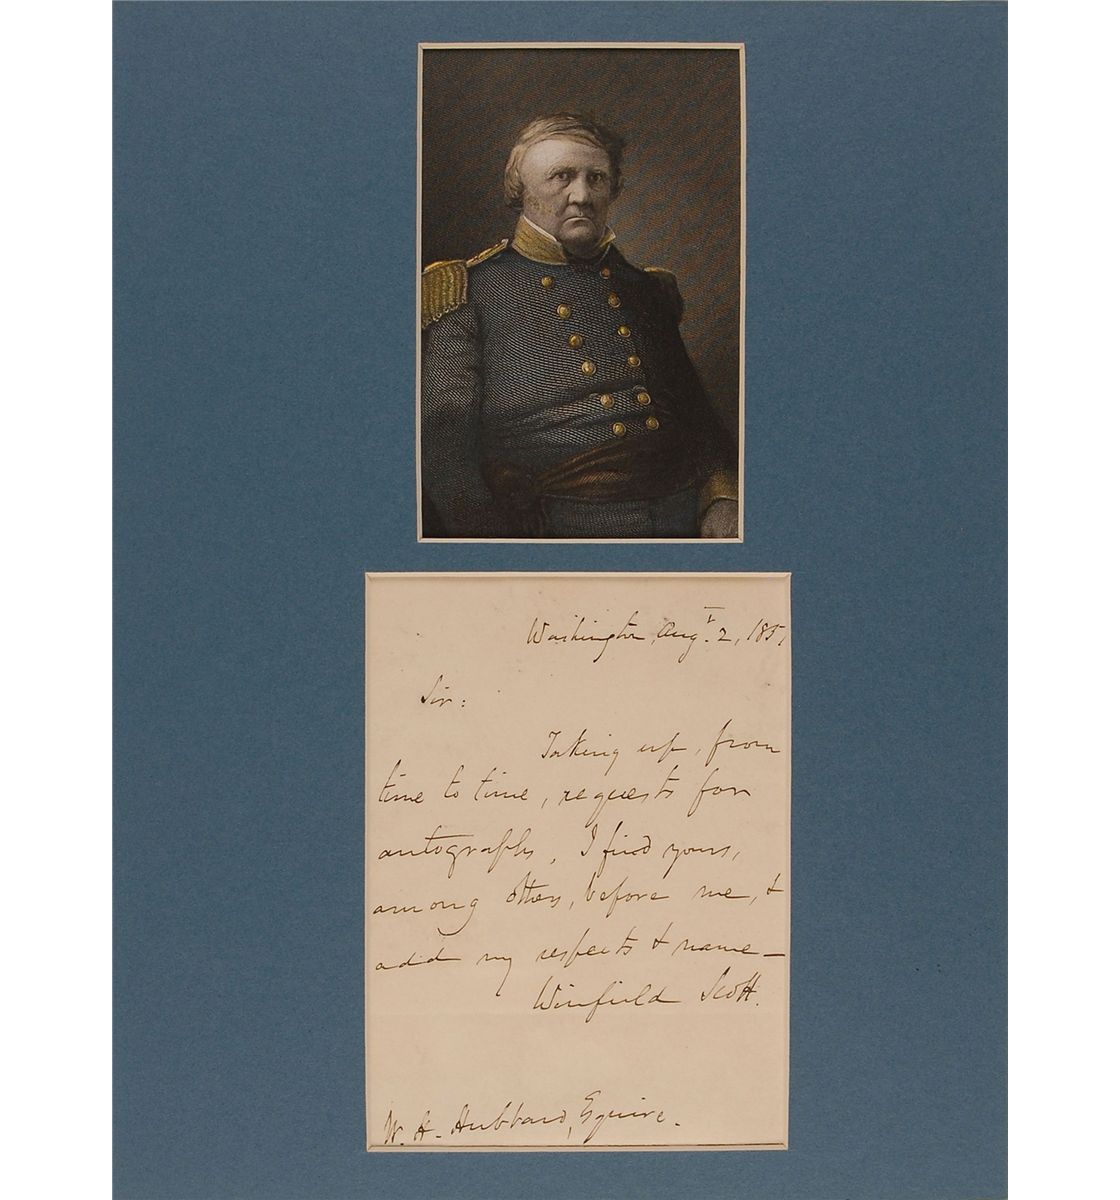 Washington, Augt. 2, 185
Sir:
Taking up, from
time to time, requests for
autographs, I find yours,
among others, before me, &
add my respects & name—
Winfield Scott.
W. H. Hubbard, Esquire.